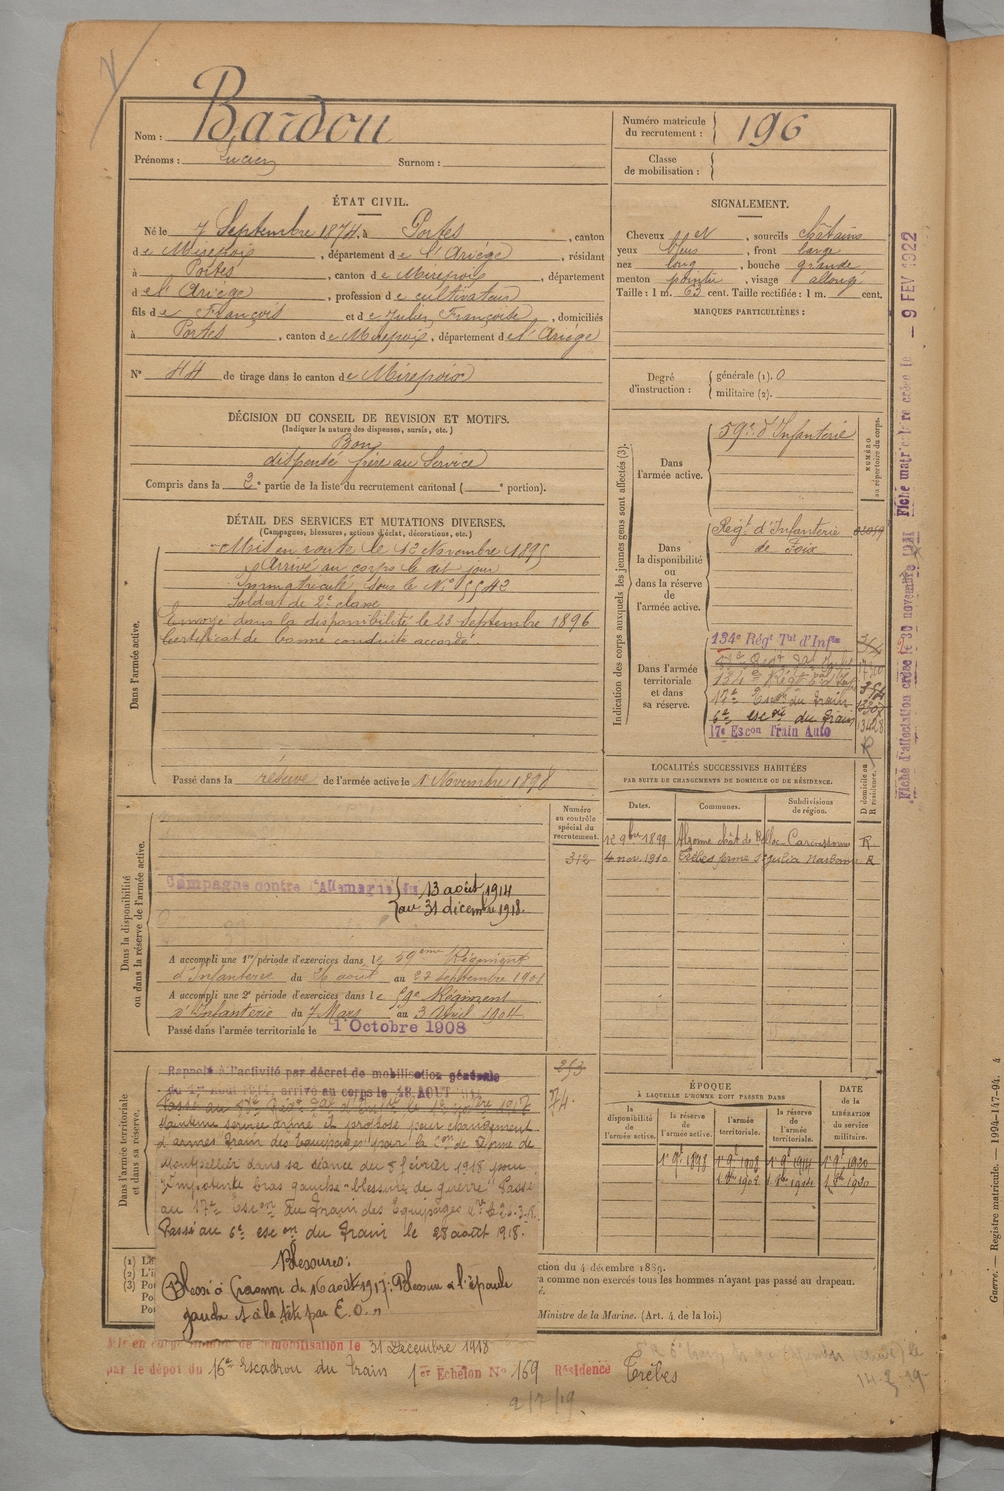 Nom : Bardou
Prénoms : Lucien Surnom :
Numéro matricule du recrutement : 196
Classe de mobilisation :
ÉTAT CIVIL.
Né le 7 Septembre 1874, à Portes, canton
de Mirepoix, département de l'Ariège, résidant
à Portes, canton de Mirepoix, département
de l'Ariège, profession de cultivateur
fils de François et de Julie, Françoise, domiciliés
à Portes, canton de Mirepoix, département de l'Ariège
N° 44 de tirage dans le canton de Mirepoix
SIGNALEMENT.
Cheveux , sourcils châtains
yeux bleus, front large
nez long, bouche grande,
menton pointu, visage allongé
Taille : 1 m. 63 cent. Taille rectifiée : 1 m. cent.
MARQUES PARTICULIÈRES :
Degré d'instruction : générale (1). 0
militaire (2).
DÉCISION DU CONSEIL DE REVISION ET MOTIFS.
(Indiquer la nature des dispenses, sursis, etc.)
Bon
dispensé frère au Service
Compris dans la 3e partie de la liste du recrutement cantonal ( e portion).
DÉTAIL DES SERVICES ET MUTATIONS DIVERSES.
(Campagnes, blessures, actions d'éclat, décorations, etc.)
Dans l'armée active.
Mis en route le 13 Novembre 1895
Arrivé au corps le dit jour
immatriculé sous le N° 5542
Soldat de 2e classe
Envoyé dans la disponibilité le 23 septembre 1896
Certificat de bonne conduite accordé.
Passé dans la réserve de l'armée active le 1 Novembre 1898
Indication des corps auxquels les jeunes gens sont affectés (3).
NUMÉRO au répertoire du corps.
Dans l'armée active.
59e d'Infanterie
Dans la disponibilité ou dans la réserve de l'armée active.
Regt d'Infanterie
de Foix
Dans l'armée territoriale et dans sa réserve.
134e Régt Tal d'Infie
134e Régt
17e Escon du Train
6e escon du Train
17e Escon Train Auto
13428
R
Fiche d'affectation créée le 30 novembre 1921 Fiche matriculaire créée le - 9 FEV 1922
LOCALITÉS SUCCESSIVES HABITÉES
PAR SUITE DE CHANGEMENTS DE DOMICILE OU DE RÉSIDENCE.
Dates. Communes. Subdivisions de région. D domicile ou R résidence.
12 9bre 1899 Alzonne chât de Carcassonne R
4 nov. 1910 Trèbes ferme Ste Julia Narbonne R
Dans la disponibilité ou dans la réserve de l'armée active.
Numéro au contrôle spécial du recrutement.
312
Campagne contre l'Allemagne du 13 août 1914
au 31 décembre 1918.
A accompli une 1re période d'exercices dans le 59ème Régiment
d'Infanterie du 26 août au 22 septembre 1901
A accompli une 2e période d'exercices dans le 59e Régiment
d'Infanterie du 7 Mars au 3 Avril 1904
Passé dans l'armée territoriale le 1 Octobre 1908
Dans l'armée territoriale et dans sa réserve.
253
74
Rappelé à l'activité par décret de mobilisation générale
du 1er août 1914, arrivé au corps le 18 AOUT
Maintenu service armé et proposé pour changement
d'armes Train des Equipages par la Con de réforme de
Montpellier dans sa séance du 8 février 1918 pour
"impotence bras gauche - blessure de guerre" Passé
au 17e Escon du Train des Equipages
Passé au 6e escon du Train le 28 août 1918.
Blessures:
Blessé à Craonne du 16 août 1917: Blessure à l'épaule
gauche et à la tête par E. O. "
ÉPOQUE
À LAQUELLE L'HOMME DOIT PASSER DANS
la disponibilité de l'armée active. la réserve de l'armée active. l'armée territoriale. la réserve de l'armée territoriale. DATE de la LIBÉRATION du service militaire.
1er 9bre 1898
ction du 4 décembre 1889.
a comme non exercés tous les hommes n'ayant pas passé au drapeau.
Ministre de la Marine. (Art. 4 de la loi.)
Mis en congé de démobilisation le 31 Décembre 1918
par le dépôt du 16e Escadron du Train 1er Echelon N° 159 Résidence Trèbes
2/7/19.
Guerre. — Registre matricule. — 1994-147-94. 4